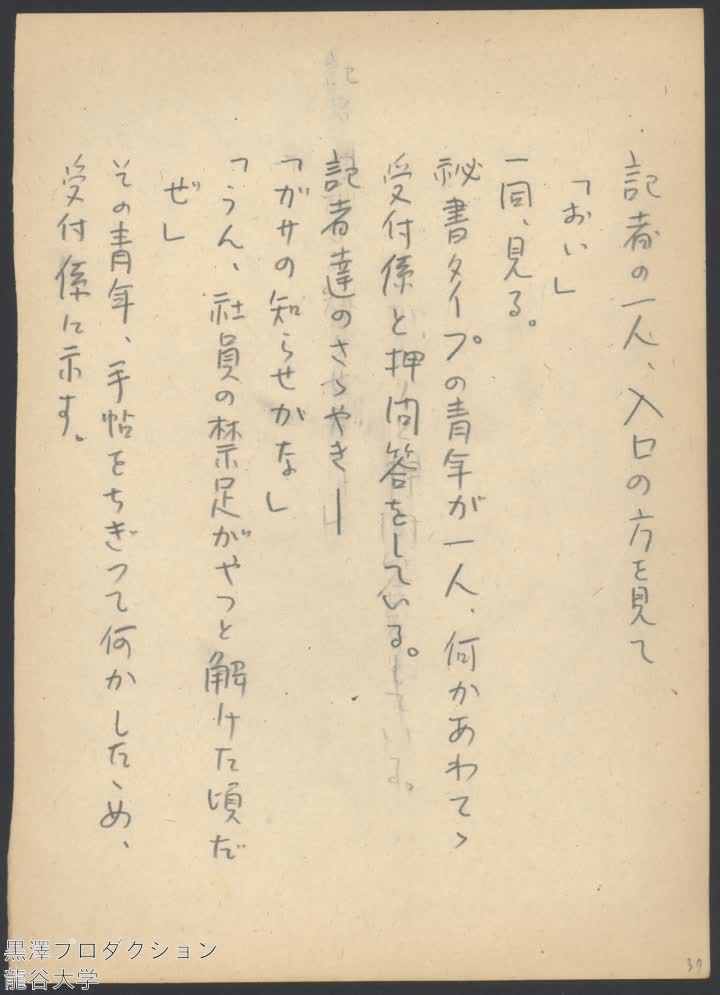 記者の一人、入口の方を見て
「おい」
一同、見る。
秘書タイプの青年が一人、何かあわてゝ
受付係と押問答をしている。
記者達のさゝやき―
「ガサの知らせがな」
「うん、社員の禁足がやつと解けた頃だ
ぜ」
その青年、手帖をちぎつて何かしたゝめ、
受付係に示す。
37
黒澤プロダクション
龍谷大学